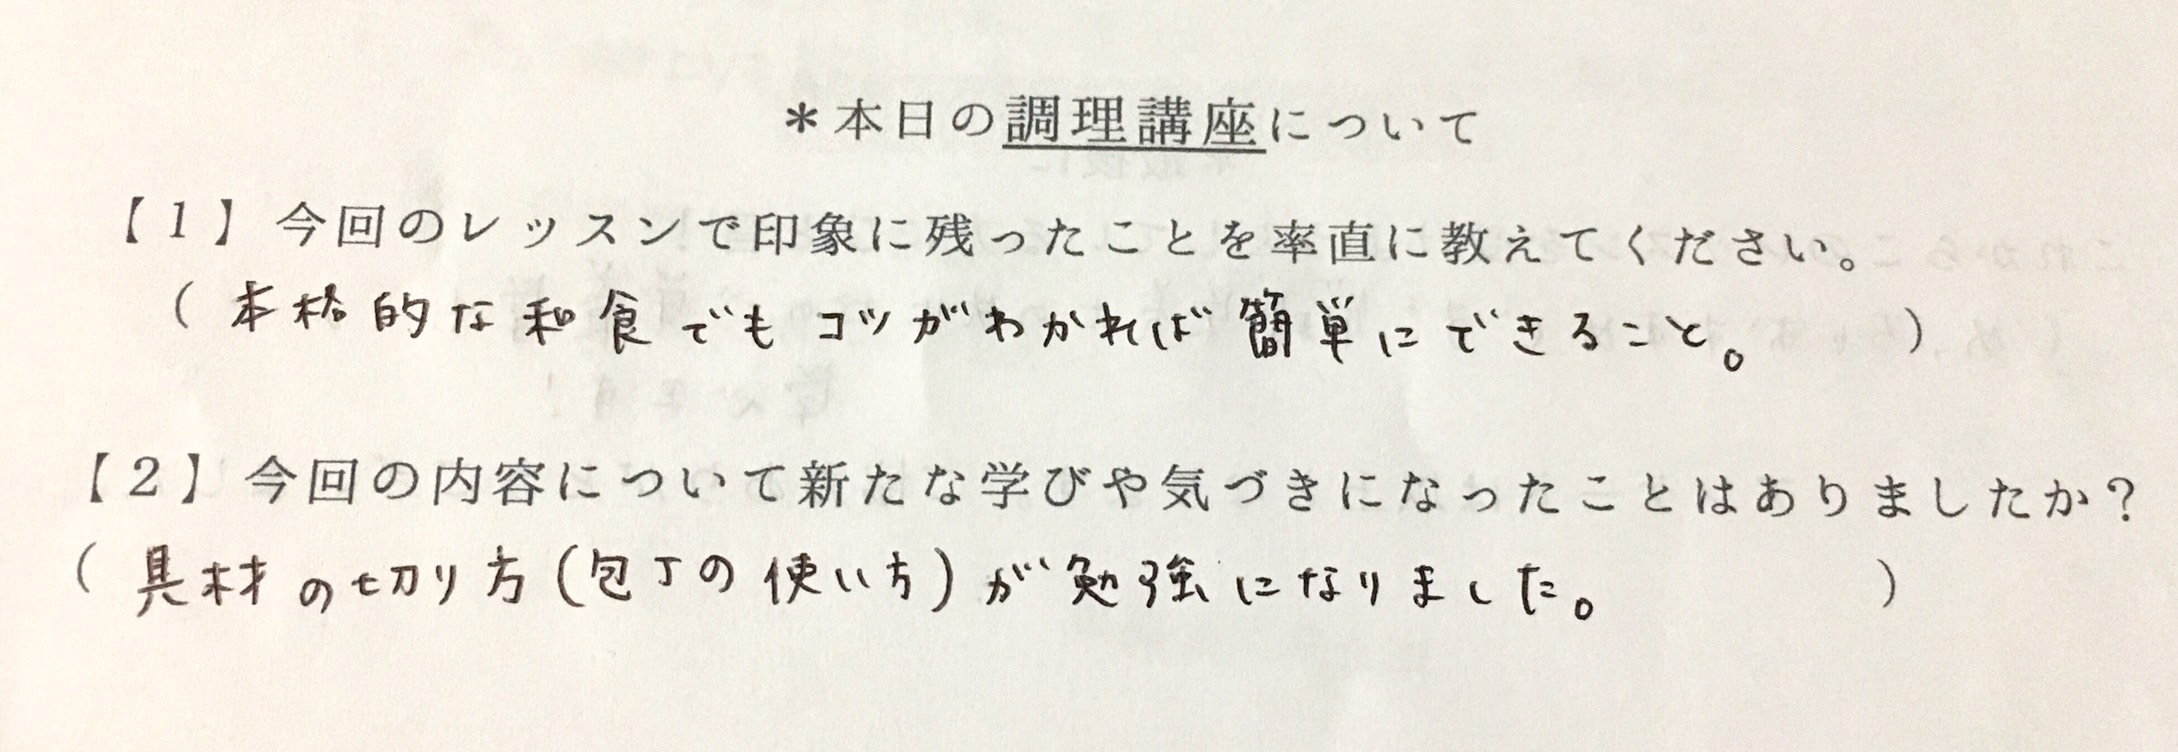 ＊本日の調理講座について
【１】今回のレッスンで印象に残ったことを率直に教えてください。
（本格的な和食でもコツがわかれば簡単にできること。）
【２】今回の内容について新たな学びや気づきになったことはありましたか？
（具材の切り方(包丁の使い方)が勉強になりました。）